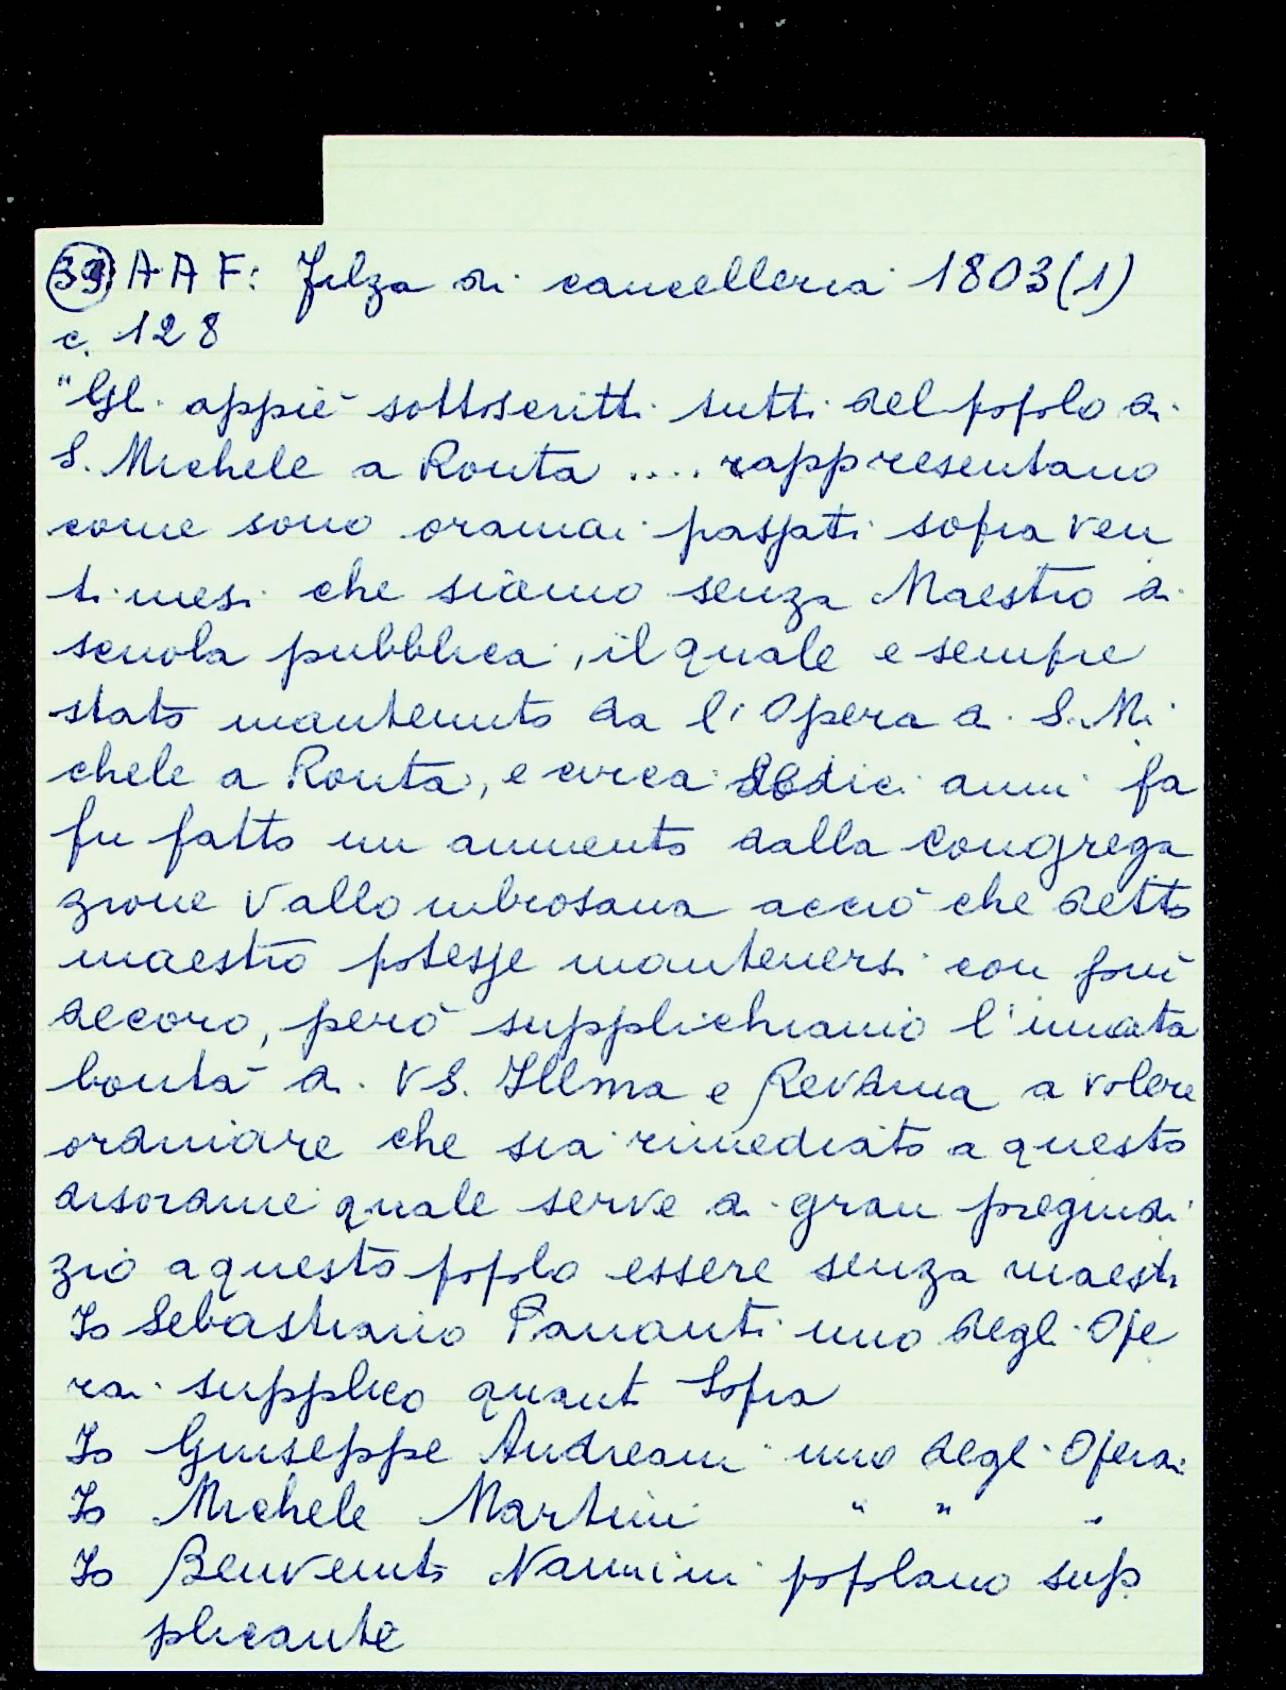 39 AAF: Filza di cancelleria 1803(1)
c. 128
"Gli appiè sottoscritti tutti del popolo di
S. Michele a Ronta .... rappresentano
come sono oramai passati sopra ven
ti mesi che siamo senza Maestro di
scuola pubblica, il quale e sempre
stato mantenuto da l'Opera di S. Mi
chele a Ronta, e circa sedici anni fa
fu fatto un aumento dalla Congrega
zione Vallombrosana acciò che detto
maestro potesse mantenersi con più
decoro, però supplichiamo l'innata
bontà di VS. Illma e Revdma a volere
ordinare che sia rimediato a questo
disordine quale serve di gran pregiudi
zio a questo popolo essere senza maestr
Io Sebastiano Pananti uno degli Ope
rai supplico quant Sopra
Io Giuseppe Andreani uno degli Operai
Io Michele Martini " " "
Io Benvenuto Nannini popolano sup
plicante